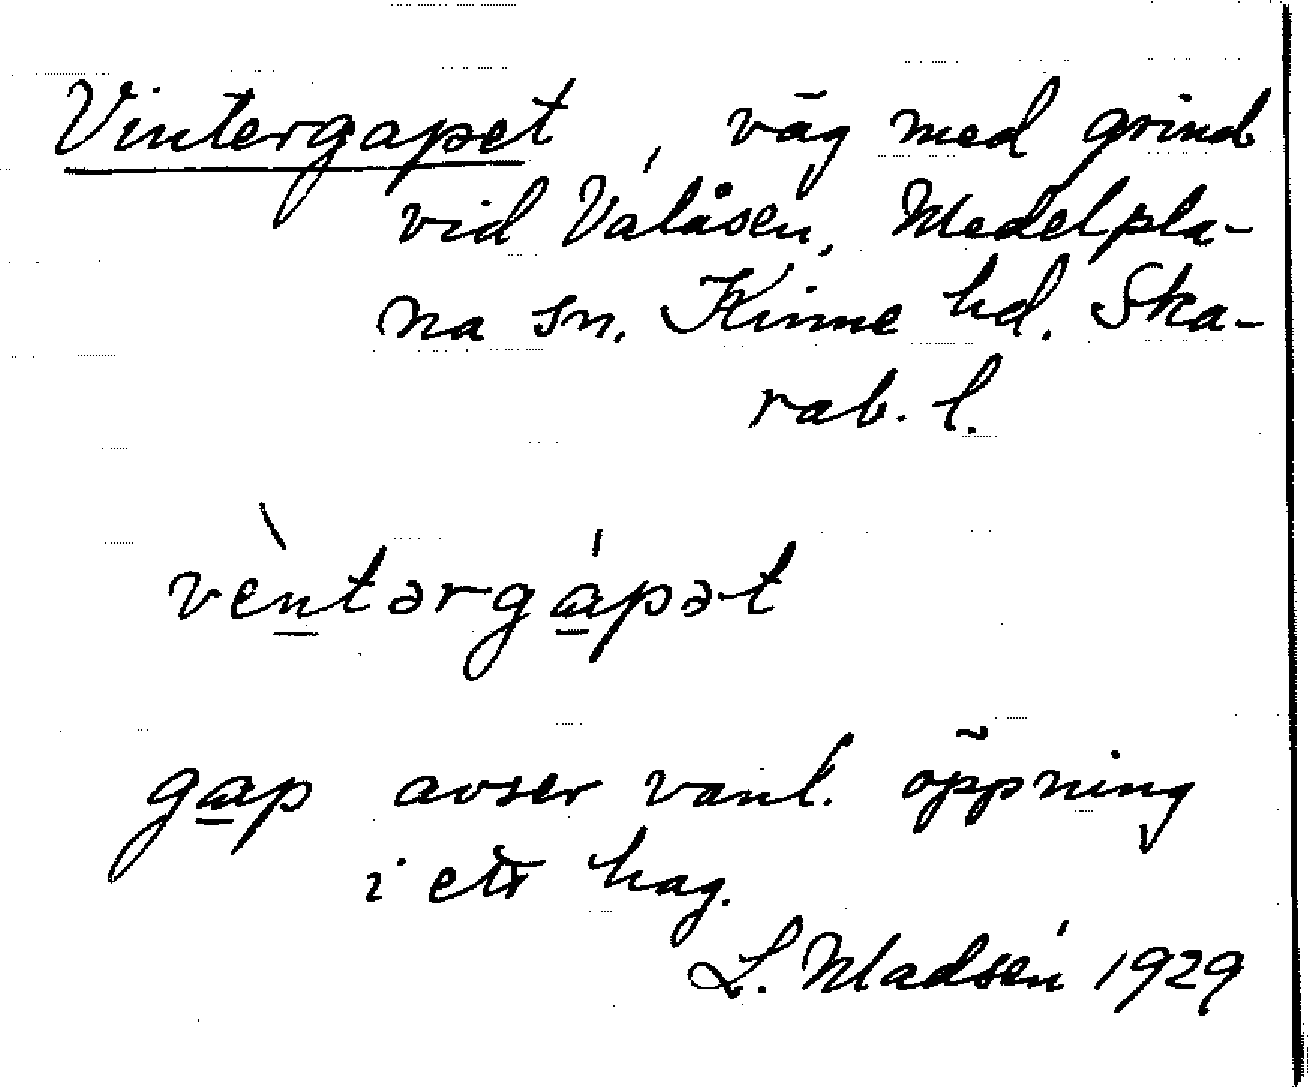 Vintergapet, väg med grind
vid Vålåsen, Medelpla-
na sn. Kinne hd. Ska-
rab. l.
vèntərgápət
gap avser vanl. öppning
i ett hag.
L. Madsén 1929